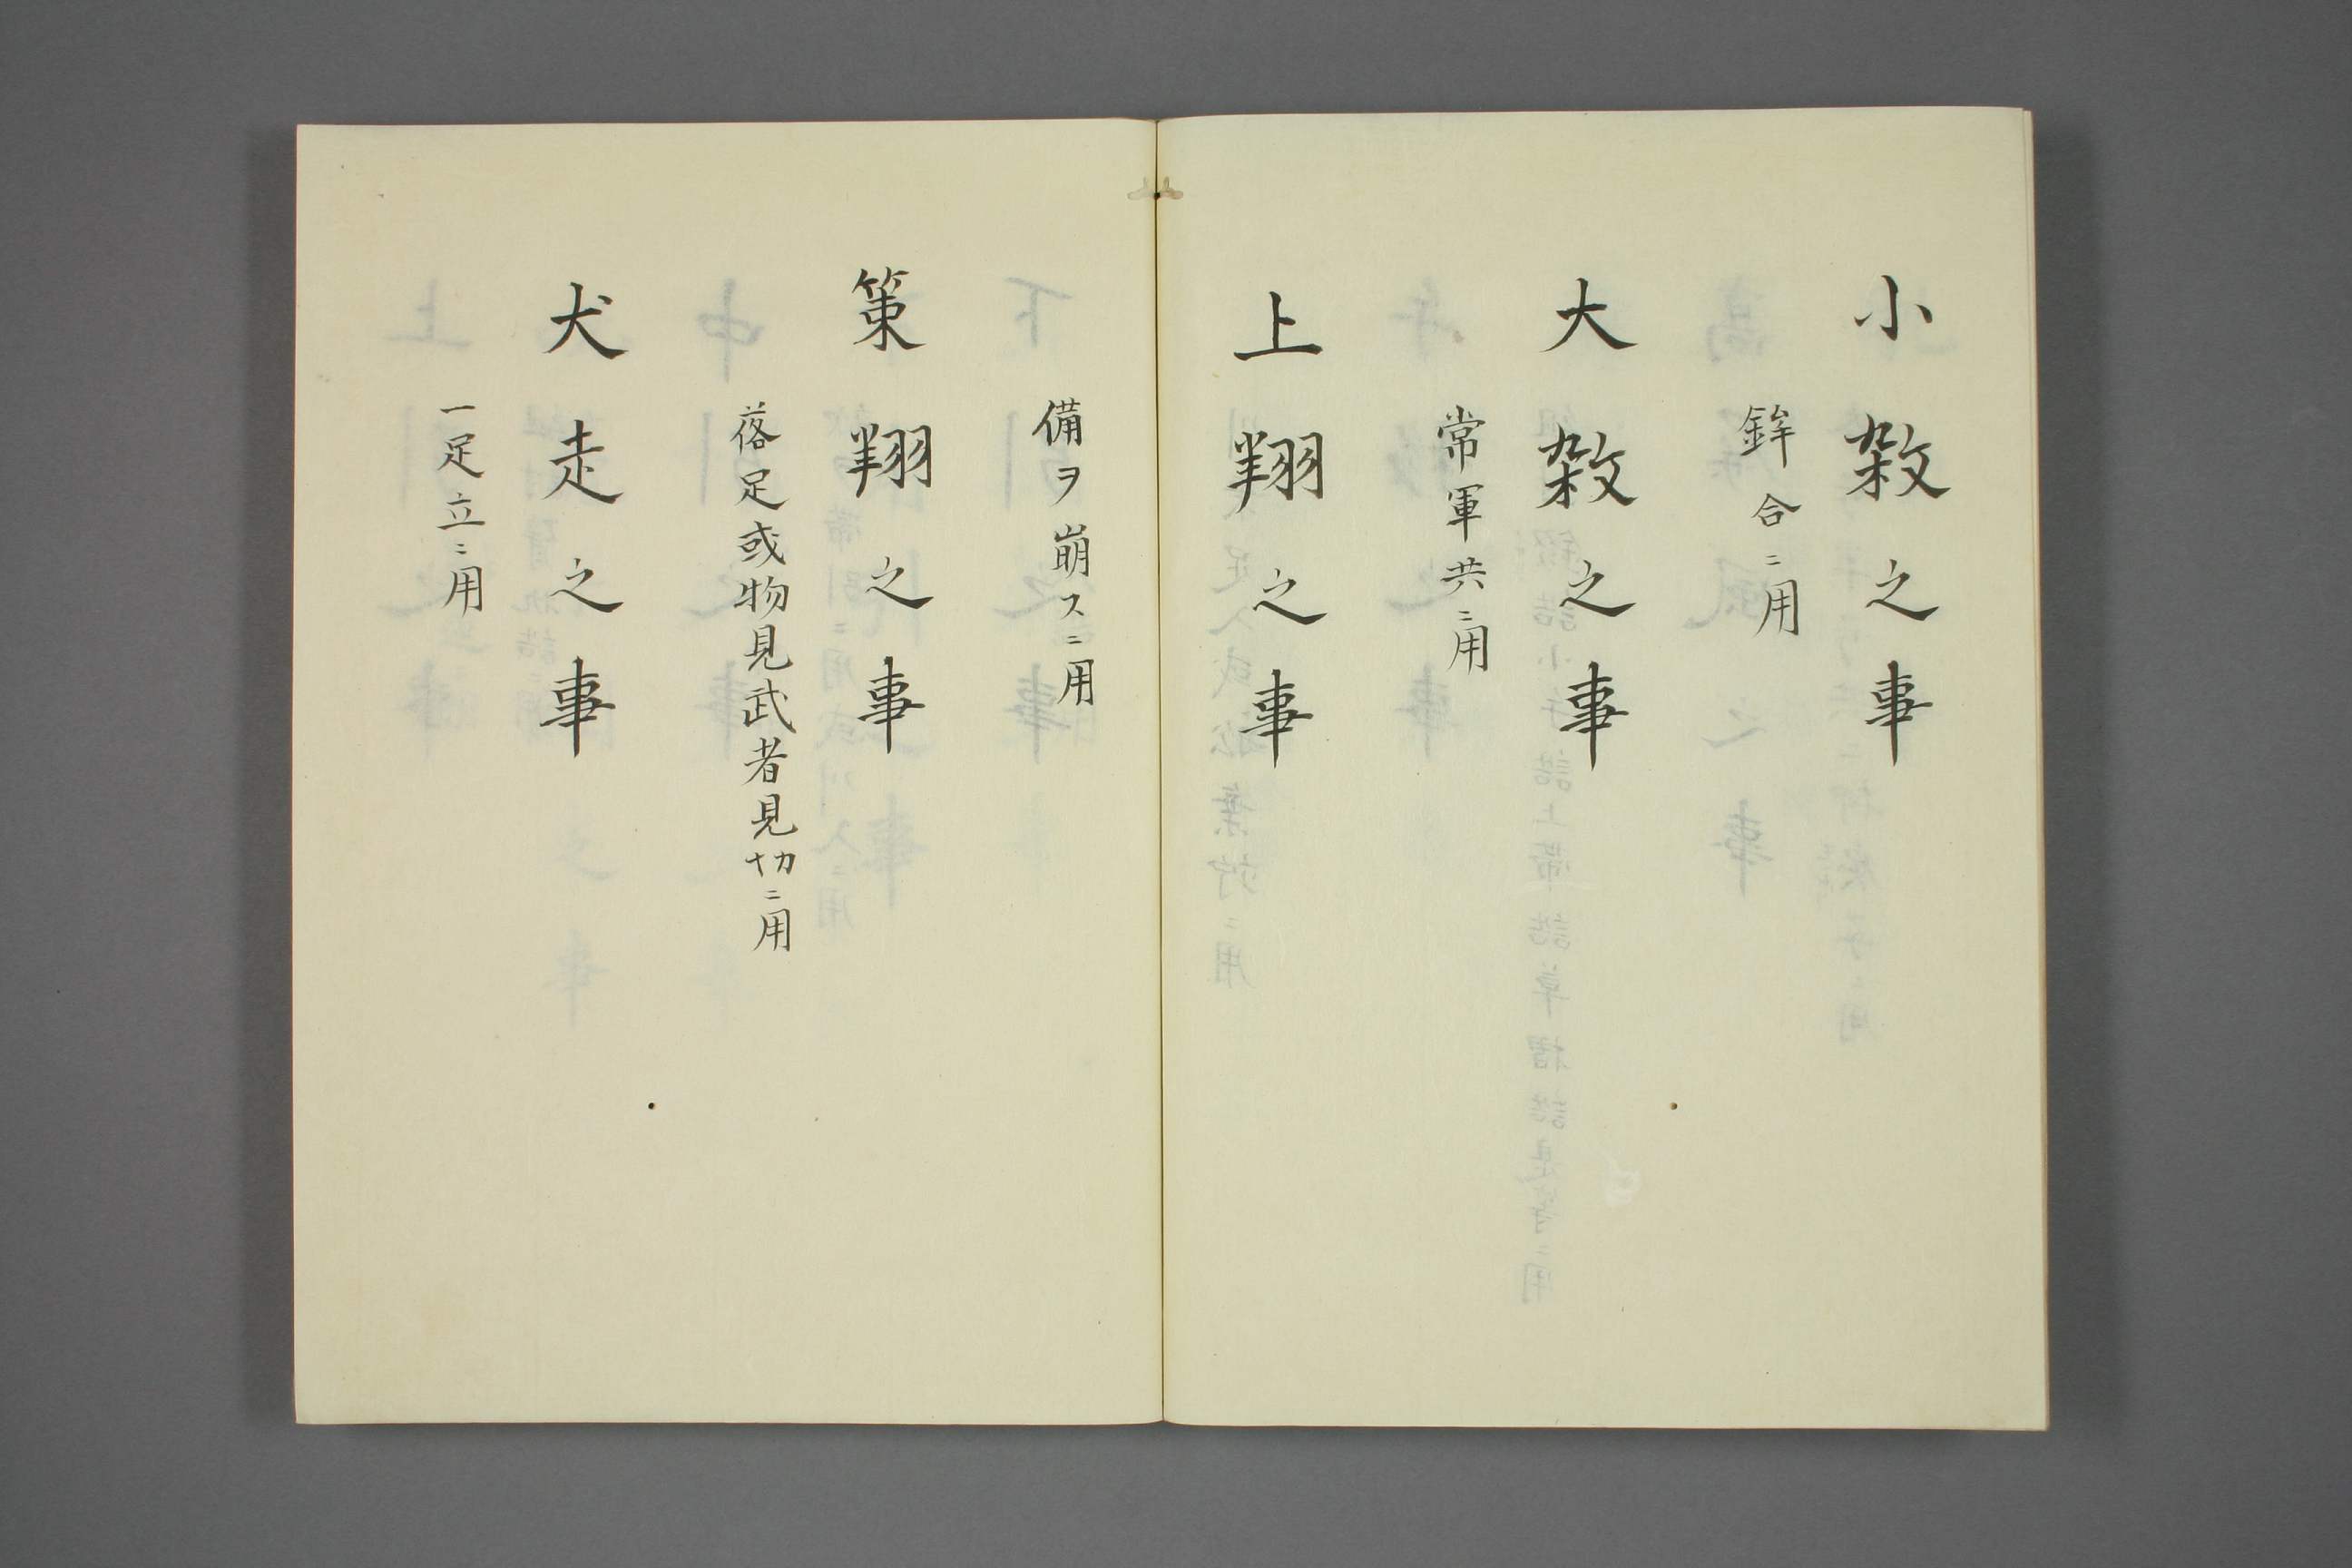 小敹之事
鉾合ニ用
大敹之事
常軍共ニ用
上翔之事
備ヲ崩スニ用
策翔之事
落足或物見武者見切ニ用
犬走之事
一足立ニ用